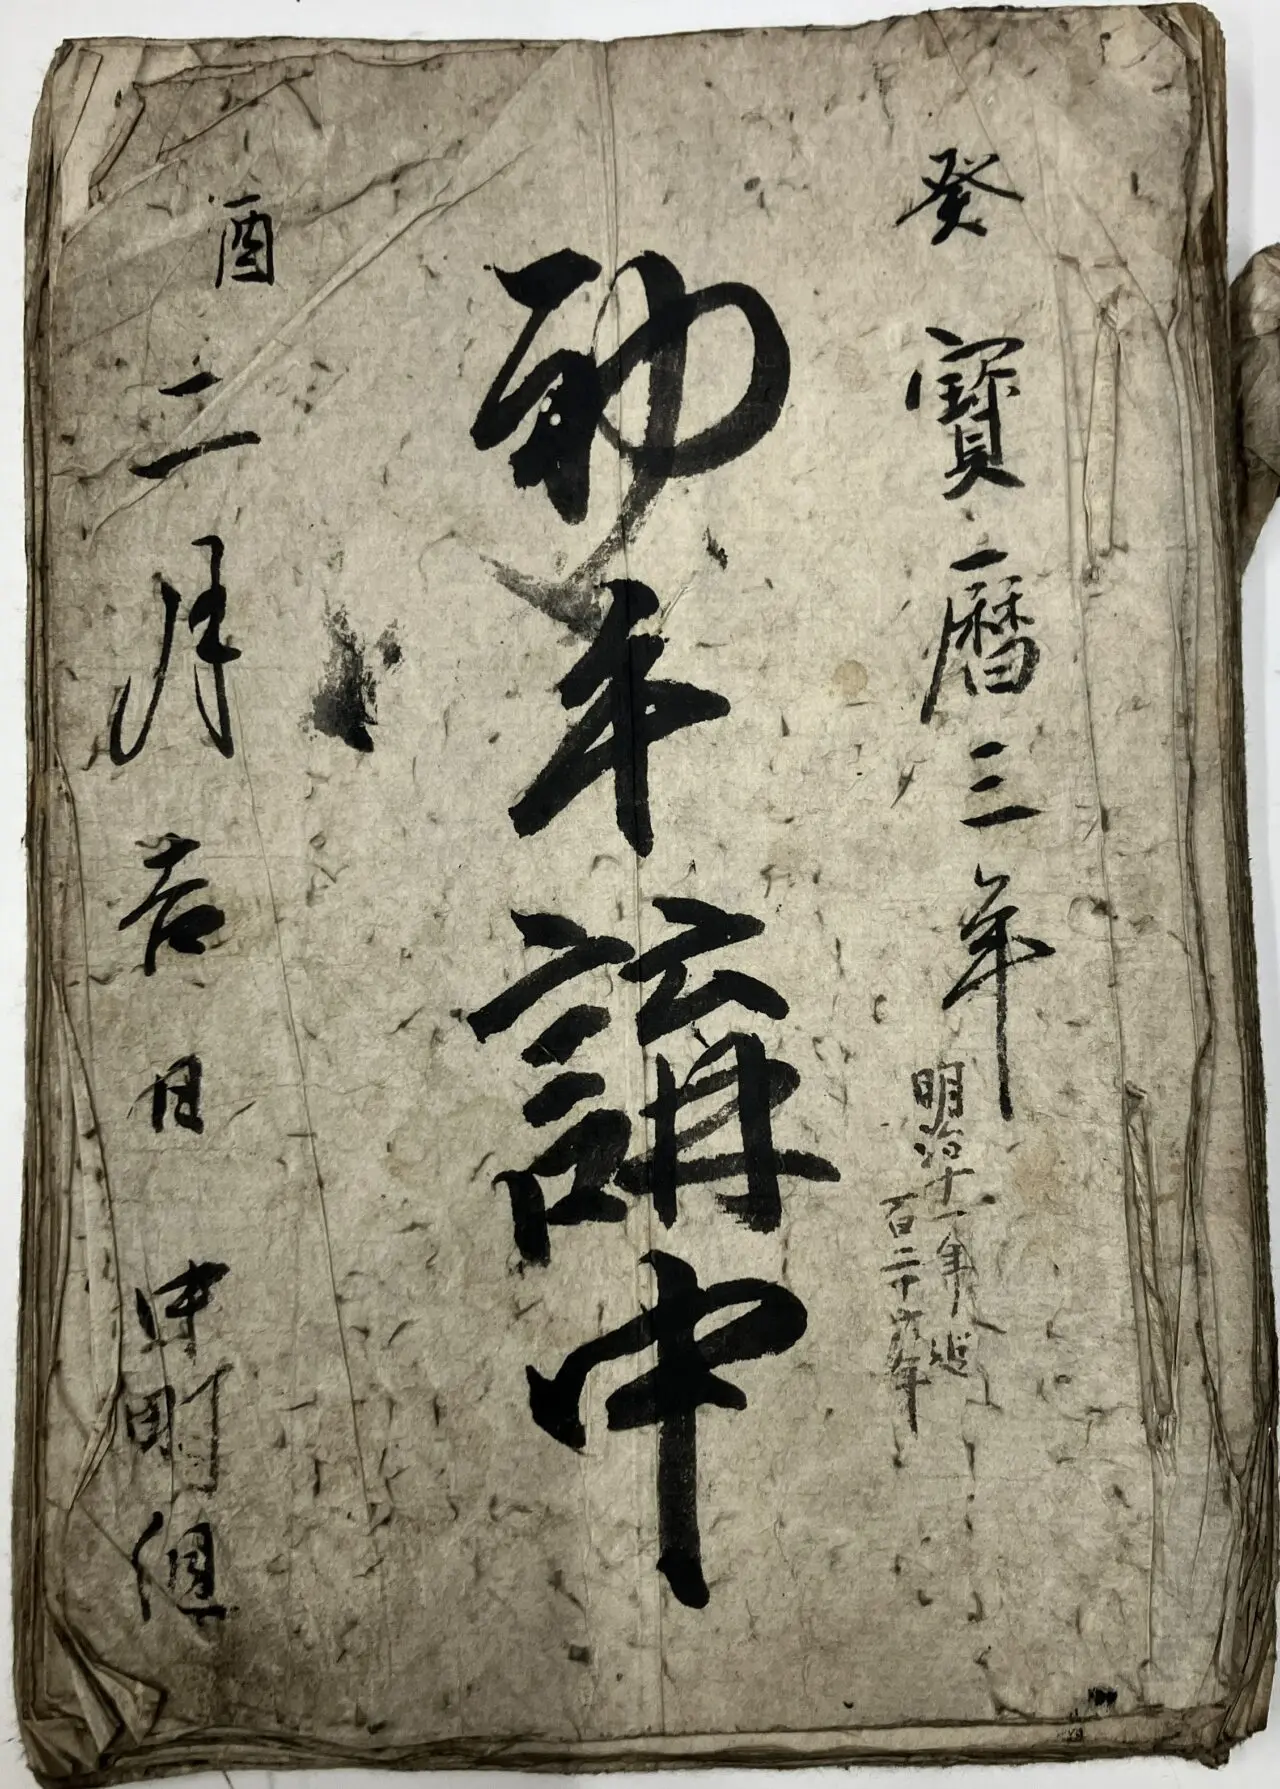 癸
寶暦三年
明治十一年迄
百二十六年
初午講中
酉
二月吉日 中町組